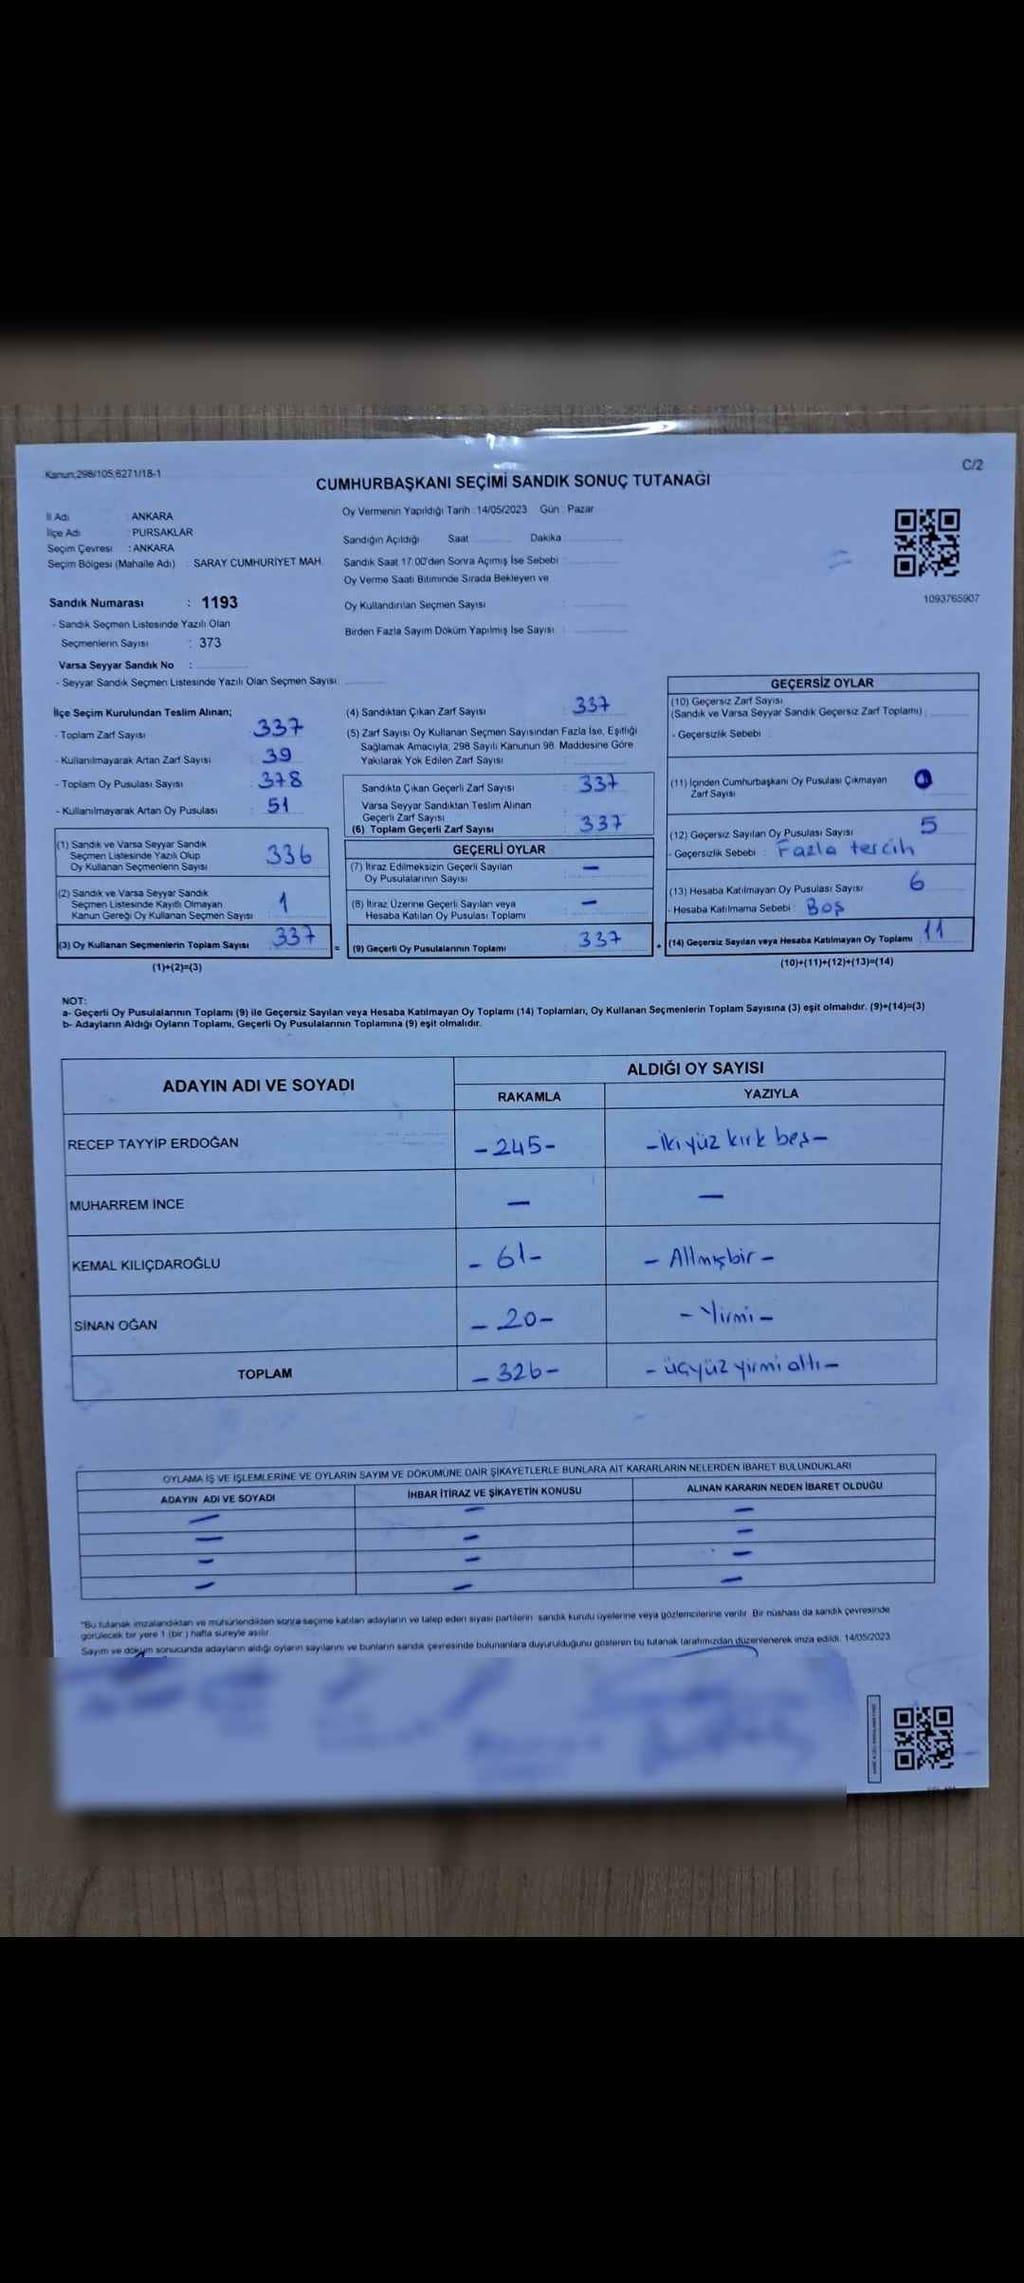 Kanun:298/105,6271/18-1
C/2
CUMHURBAŞKANI SEÇİMİ SANDIK SONUÇ TUTANAĞI
İl Adı : ANKARA
İlçe Adı : PURSAKLAR
Seçim Çevresi : ANKARA
Seçim Bölgesi (Mahalle Adı) : SARAY CUMHURİYET MAH.
Sandık Numarası : 1193
- Sandık Seçmen Listesinde Yazılı Olan
Seçmenlerin Sayısı : 373
Varsa Seyyar Sandık No :
- Seyyar Sandık Seçmen Listesinde Yazılı Olan Seçmen Sayısı:
Oy Vermenin Yapıldığı Tarih : 14/05/2023 Gün : Pazar
Sandığın Açıldığı Saat Dakika
Sandık Saat 17:00'den Sonra Açımış İse Sebebi :
Oy Verme Saati Bitiminde Sırada Bekleyen ve
Oy Kullandırılan Seçmen Sayısı :
Birden Fazla Sayım Döküm Yapılmış İse Sayısı :
1093765907
İlçe Seçim Kurulundan Teslim Alınan;
- Toplam Zarf Sayısı : 337
- Kullanılmayarak Artan Zarf Sayısı : 39
- Toplam Oy Pusulası Sayısı : 378
- Kullanılmayarak Artan Oy Pusulası : 51
(1) Sandık ve Varsa Seyyar Sandık
Seçmen Listesinde Yazılı Olup
Oy Kullanan Seçmenlerin Sayısı : 336
(2) Sandık ve Varsa Seyyar Sandık
Seçmen Listesinde Kayıtlı Olmayan
Kanun Gereği Oy Kullanan Seçmen Sayısı : 1
(3) Oy Kullanan Seçmenlerin Toplam Sayısı : 337
(1)+(2)=(3)
(4) Sandıktan Çıkan Zarf Sayısı : 337
(5) Zarf Sayısı Oy Kullanan Seçmen Sayısından Fazla İse, Eşitliği
Sağlamak Amacıyla, 298 Sayılı Kanunun 98. Maddesine Göre
Yakılarak Yok Edilen Zarf Sayısı :
Sandıkta Çıkan Geçerli Zarf Sayısı : 337
Varsa Seyyar Sandıktan Teslim Alınan
Geçerli Zarf Sayısı :
(6) Toplam Geçerli Zarf Sayısı : 337
GEÇERLİ OYLAR
(7) İtiraz Edilmeksizin Geçerli Sayılan
Oy Pusulalarının Sayısı : —
(8) İtiraz Üzerine Geçerli Sayılan veya
Hesaba Katılan Oy Pusulası Toplamı : —
= (9) Geçerli Oy Pusulalarının Toplamı : 337
GEÇERSİZ OYLAR
(10) Geçersiz Zarf Sayısı
(Sandık ve Varsa Seyyar Sandık Geçersiz Zarf Toplamı) :
- Geçersizlik Sebebi :
(11) İçinden Cumhurbaşkanı Oy Pusulası Çıkmayan
Zarf Sayısı
(12) Geçersiz Sayılan Oy Pusulası Sayısı : 5
- Geçersizlik Sebebi : Fazla tercih
(13) Hesaba Katılmayan Oy Pusulası Sayısı : 6
- Hesaba Katılmama Sebebi : Boş
+ (14) Geçersiz Sayılan veya Hesaba Katılmayan Oy Toplamı : 11
(10)+(11)+(12)+(13)=(14)
NOT:
a- Geçerli Oy Pusulalarının Toplamı (9) ile Geçersiz Sayılan veya Hesaba Katılmayan Oy Toplamı (14) Toplamları, Oy Kullanan Seçmenlerin Toplam Sayısına (3) eşit olmalıdır. (9)+(14)=(3)
b- Adayların Aldığı Oyların Toplamı, Geçerli Oy Pusulalarının Toplamına (9) eşit olmalıdır.
ADAYIN ADI VE SOYADI
ALDIĞI OY SAYISI
RAKAMLA YAZIYLA
RECEP TAYYİP ERDOĞAN -245- -İki yüz kırk beş-
MUHARREM İNCE — —
KEMAL KILIÇDAROĞLU -61- -Altmışbir-
SİNAN OĞAN -20- -Yirmi-
TOPLAM -326- -üçyüz yirmi altı-
OYLAMA İŞ VE İŞLEMLERİNE VE OYLARIN SAYIM VE DÖKÜMÜNE DAİR ŞİKAYETLERLE BUNLARA AİT KARARLARIN NELERDEN İBARET BULUNDUKLARI
ADAYIN ADI VE SOYADI İHBAR İTİRAZ VE ŞİKAYETİN KONUSU ALINAN KARARIN NEDEN İBARET OLDUĞU
— — —
— — —
— — —
— — —
"Bu tutanak imzalandıktan ve mühürlendikten sonra seçime katılan adayların ve talep eden siyasi partilerin sandık kurulu üyelerine veya gözlemcilerine verilir. Bir nüshası da sandık çevresinde
görülecek bir yere 1 (bir ) hafta süreyle asılır.
Sayım ve döküm sonucunda adayların aldığı oyların sayılarını ve bunların sandık çevresinde bulunanlara duyurulduğunu gösteren bu tutanak tarafımızdan düzenlenerek imza edildi. 14/05/2023